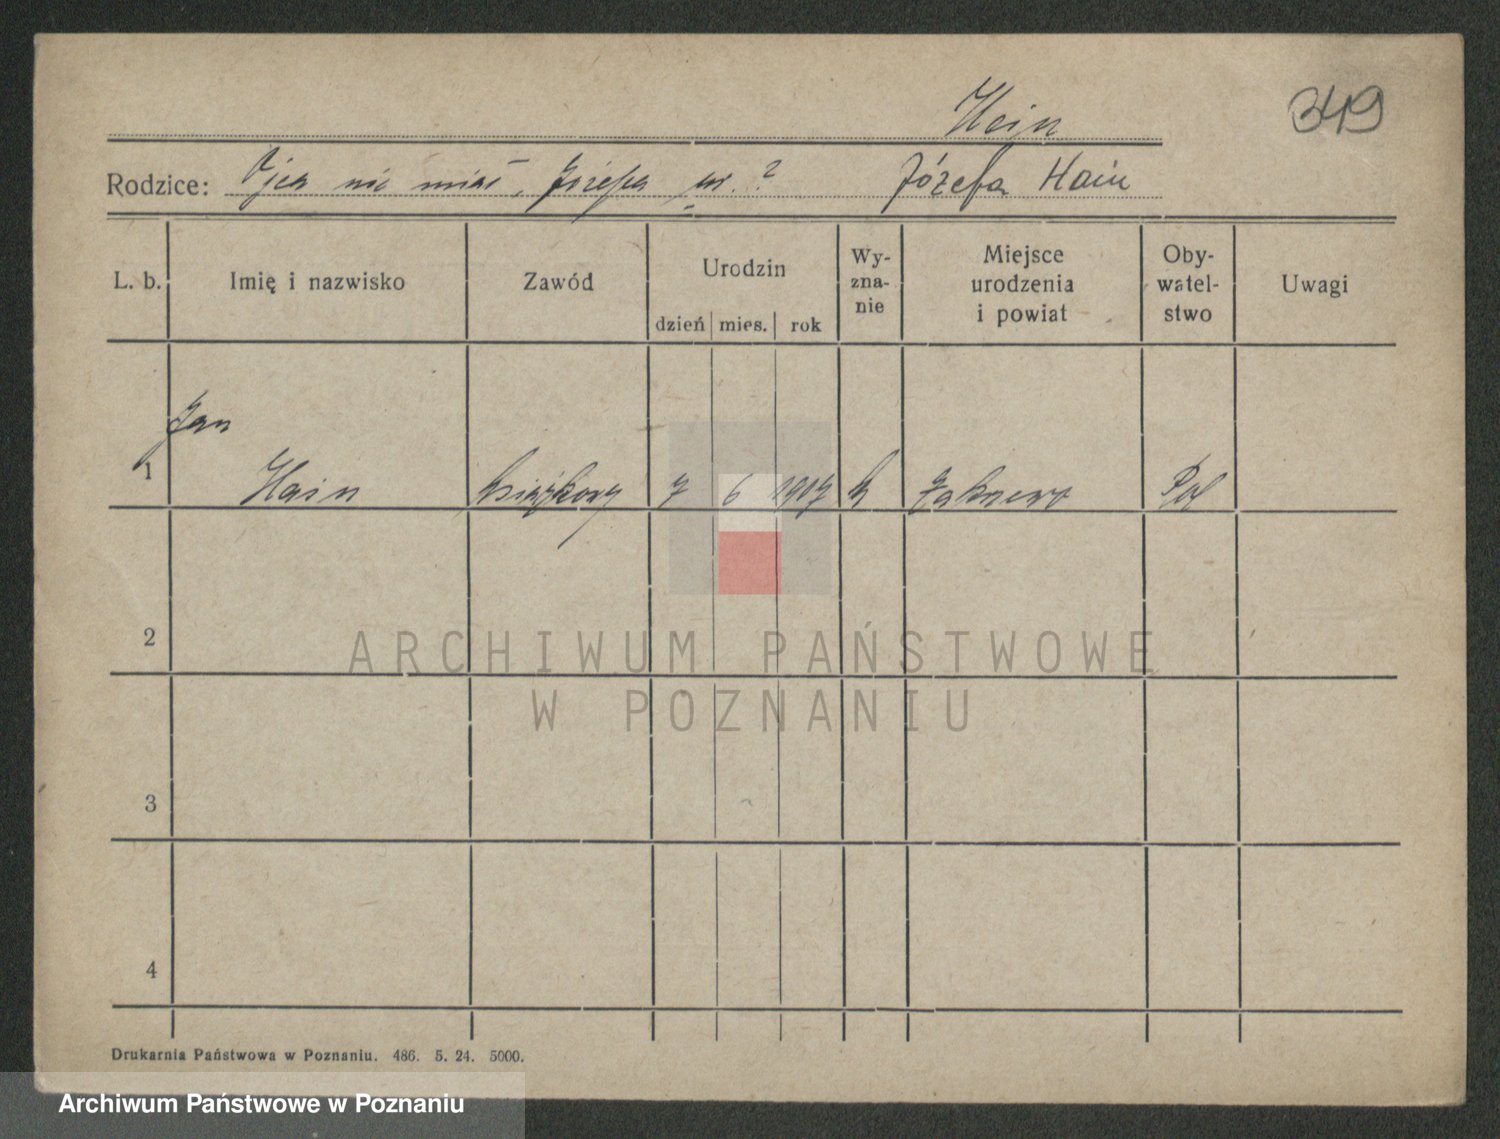 Hein
349
Rodzice: Ojca nie miał, Józefa ur. ? Józefa Hain
L. b. Imię i nazwisko Zawód Urodzin dzień mies. rok Wy-zna-nie Miejsce urodzenia i powiat Oby-watel-stwo Uwagi
Jan
1 Hain książkowy 7 6 1907 k Pol
2
ARCHIWUM PAŃSTWOWE
W POZNANIU
3
4
Drukarnia Państwowa w Poznaniu. 486. 5. 24. 5000.
Archiwum Państwowe w Poznaniu